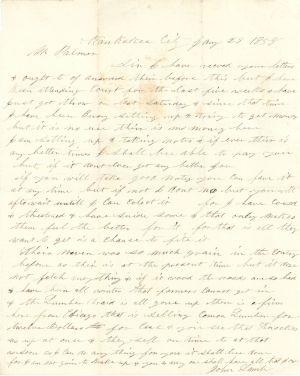 Kankakee City Jany 28 1858
Mr Palmer
Sir I have receved your letters
& ought to of answerd them before this but I have
been attending Court for the last five weeks & have
just got throw on last Saturday & since that time
I have been busy sitting up & trying to get money
but it is no use there is no money here
I am settling up & taking notes & if ever there is
any better times I shall be able to pay you
but if it dont
if you will take good notes you can have it
at any time but if not I dont no but you will
haft to wait untill I can colect it for I have
& threatend & have sued some & that only makes
them feel the better for it, for that is all they
want to get is a chance to
There never was so much grain in the country
before as there is at the present time but it will
not fetch any thing & if it wood the roads are so bad
& have been all winter that farmers cannot get in
& the Lumber trade is all gone up there is a firm
here from Chicago that is selling Common Lumber for
twelve Dollars for Cash & you see that knocks
us up at once & they sell on time to at that
so you can
for I am
John Lamb